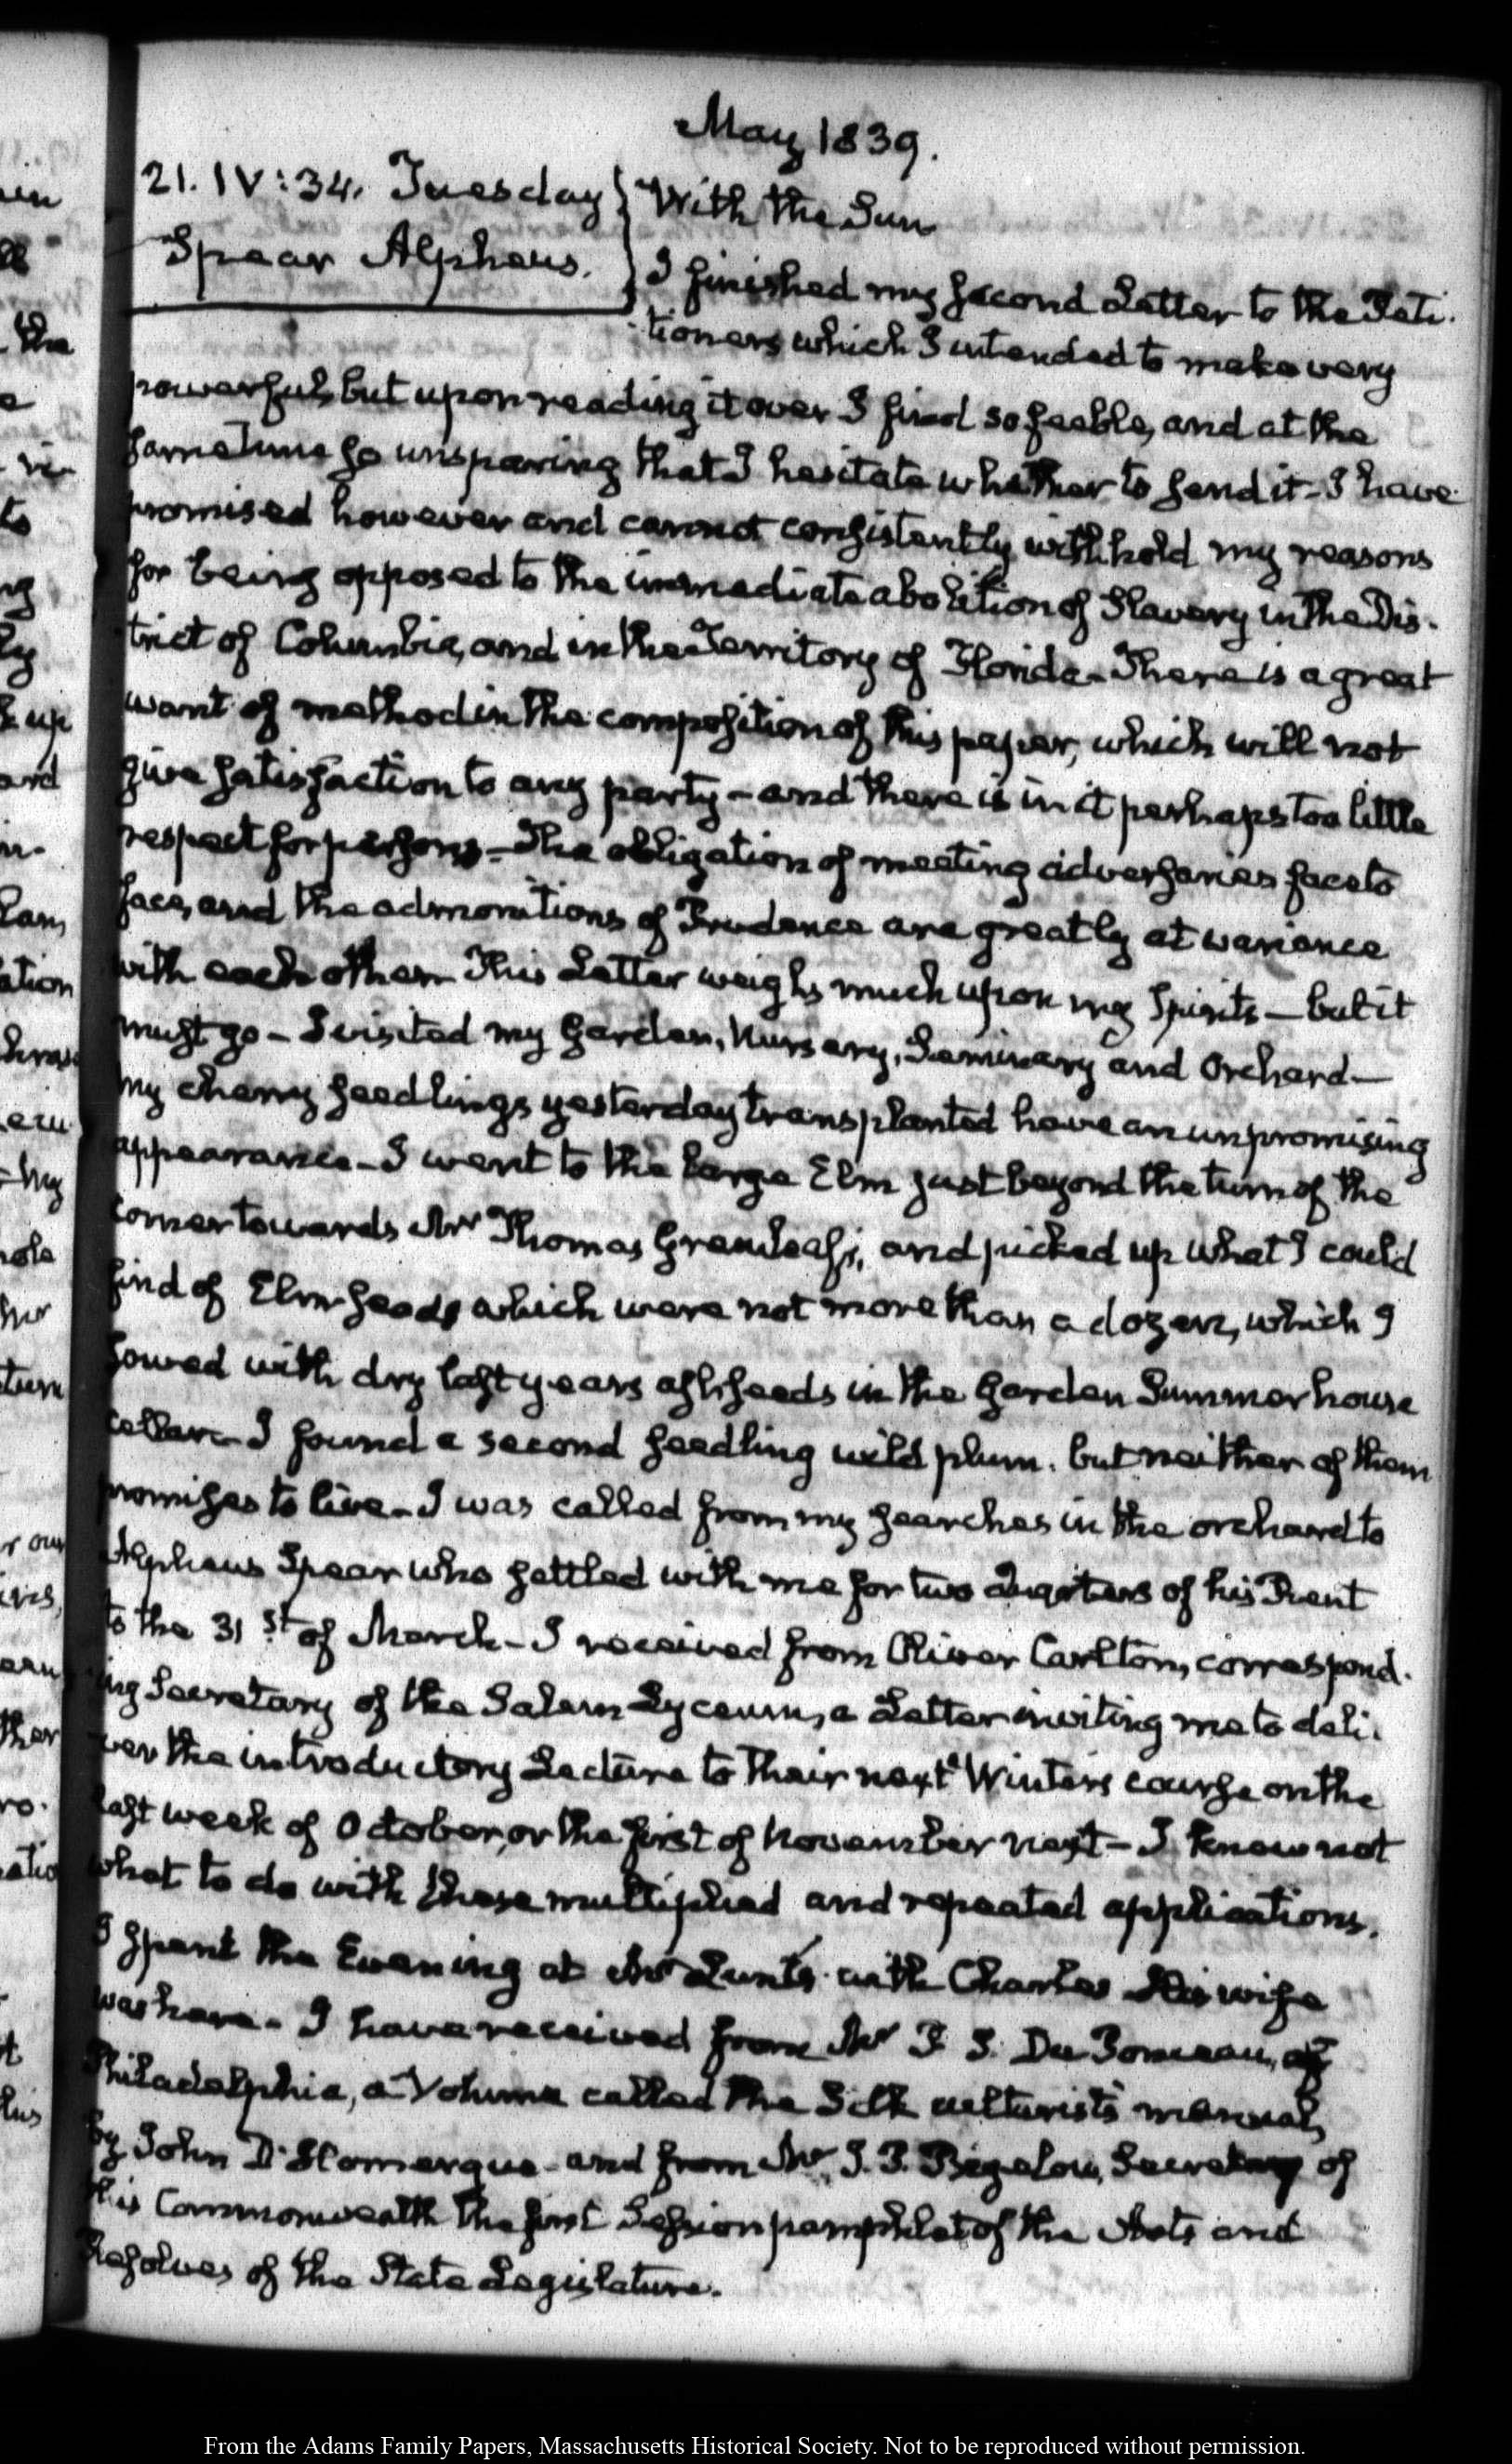 May 1839.
21. IV:34. Tuesday } With the Sun
Spear Alpheus.
I finished my second Letter to the Peti-
tioners which I intended to make very
powerful, but upon reading it over I find so feeble, and at the
same time so unsparing that I hesitate whether to send it - I have
promised however and cannot consistently withhold my reasons
for being opposed to the immediate abolition of Slavery in the Dis-
trict of Columbia, and in the Territory of Florida - There is a great
want of method in the composition of this paper, which will not
give satisfaction to any party - and there is in it perhaps too little
respect for persons - The obligation of meeting adversaries face to
face, and the admonitions of Prudence are greatly at variance
with each other. This Letter weighs much upon my Spirits - but it
must go - I visited my Garden, Nursery, Seminary and Orchard -
My cherry seedlings yesterday transplanted have an unpromising
appearance - I went to the large Elm just beyond the turn of the
corner towards Mr Thomas Greenleaf's, and picked up what I could
find of Elm seeds which were not more than a dozen, which I
sowed with dry last years ash seeds in the Garden Summer house
cellar - I found a second seedling wild plum. but neither of them
promises to live - I was called from my searches in the orchard to
Alpheus Spear who settled with me for two quarters of his Rent
to the 31st of March - I received from Oliver Carlton, correspond-
ing Secretary of the Salem Lyceum, a Letter inviting me to deli-
ver the introductory Lecture to their next Winter's course on the
last week of October, or the first of November next - I know not
what to do with these multiplied and repeated applications.
I spent the Evening at Mr Lunt's with Charles His wife
was here - I have received from Mr P. S. Du Ponceau, of
Philadelphia, a Volume called the Silk culturist's manual,
by John D'Homergue - and from Mr J. P. Bigelow, Secretary of
this Commonwealth the first Session pamphlet of the Acts and
Resolves of the State Legislature.
From the Adams Family Papers, Massachusetts Historical Society. Not to be reproduced without permission.